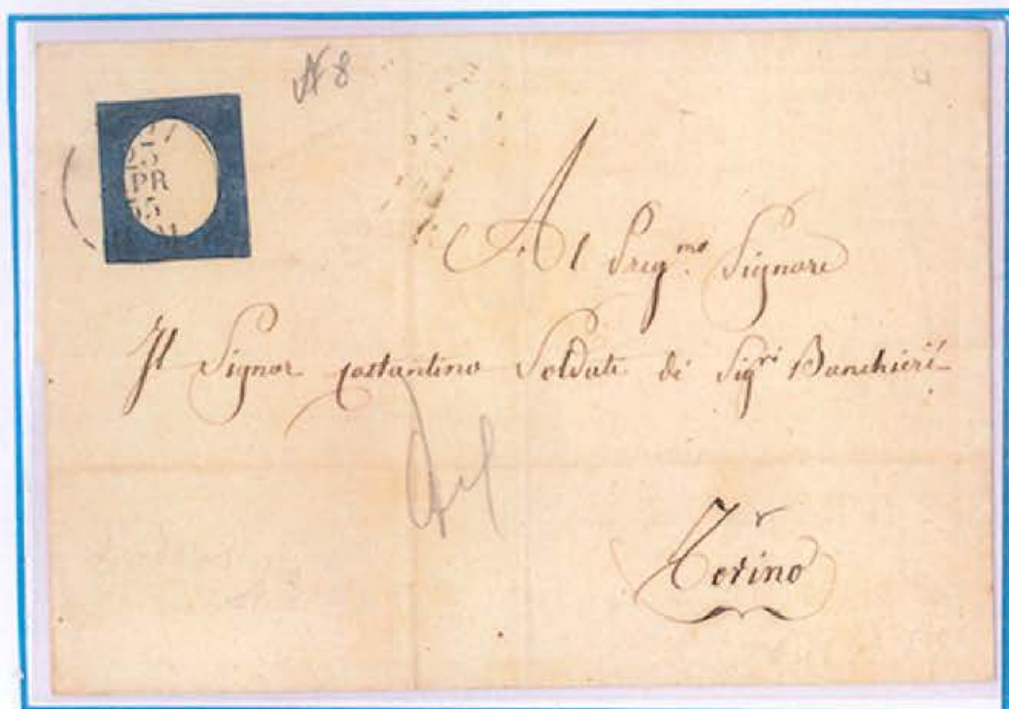 N 8
25
PR
55
Al Preg.mo Signore
Il Signor Costantino Soldati di Sigri Banchieri
Torino